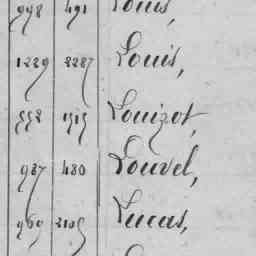 998 491 Louis,
1229 2287 Louis,
552 1515 Louizot,
937 480 Louvel,
969 2105 Lucas,